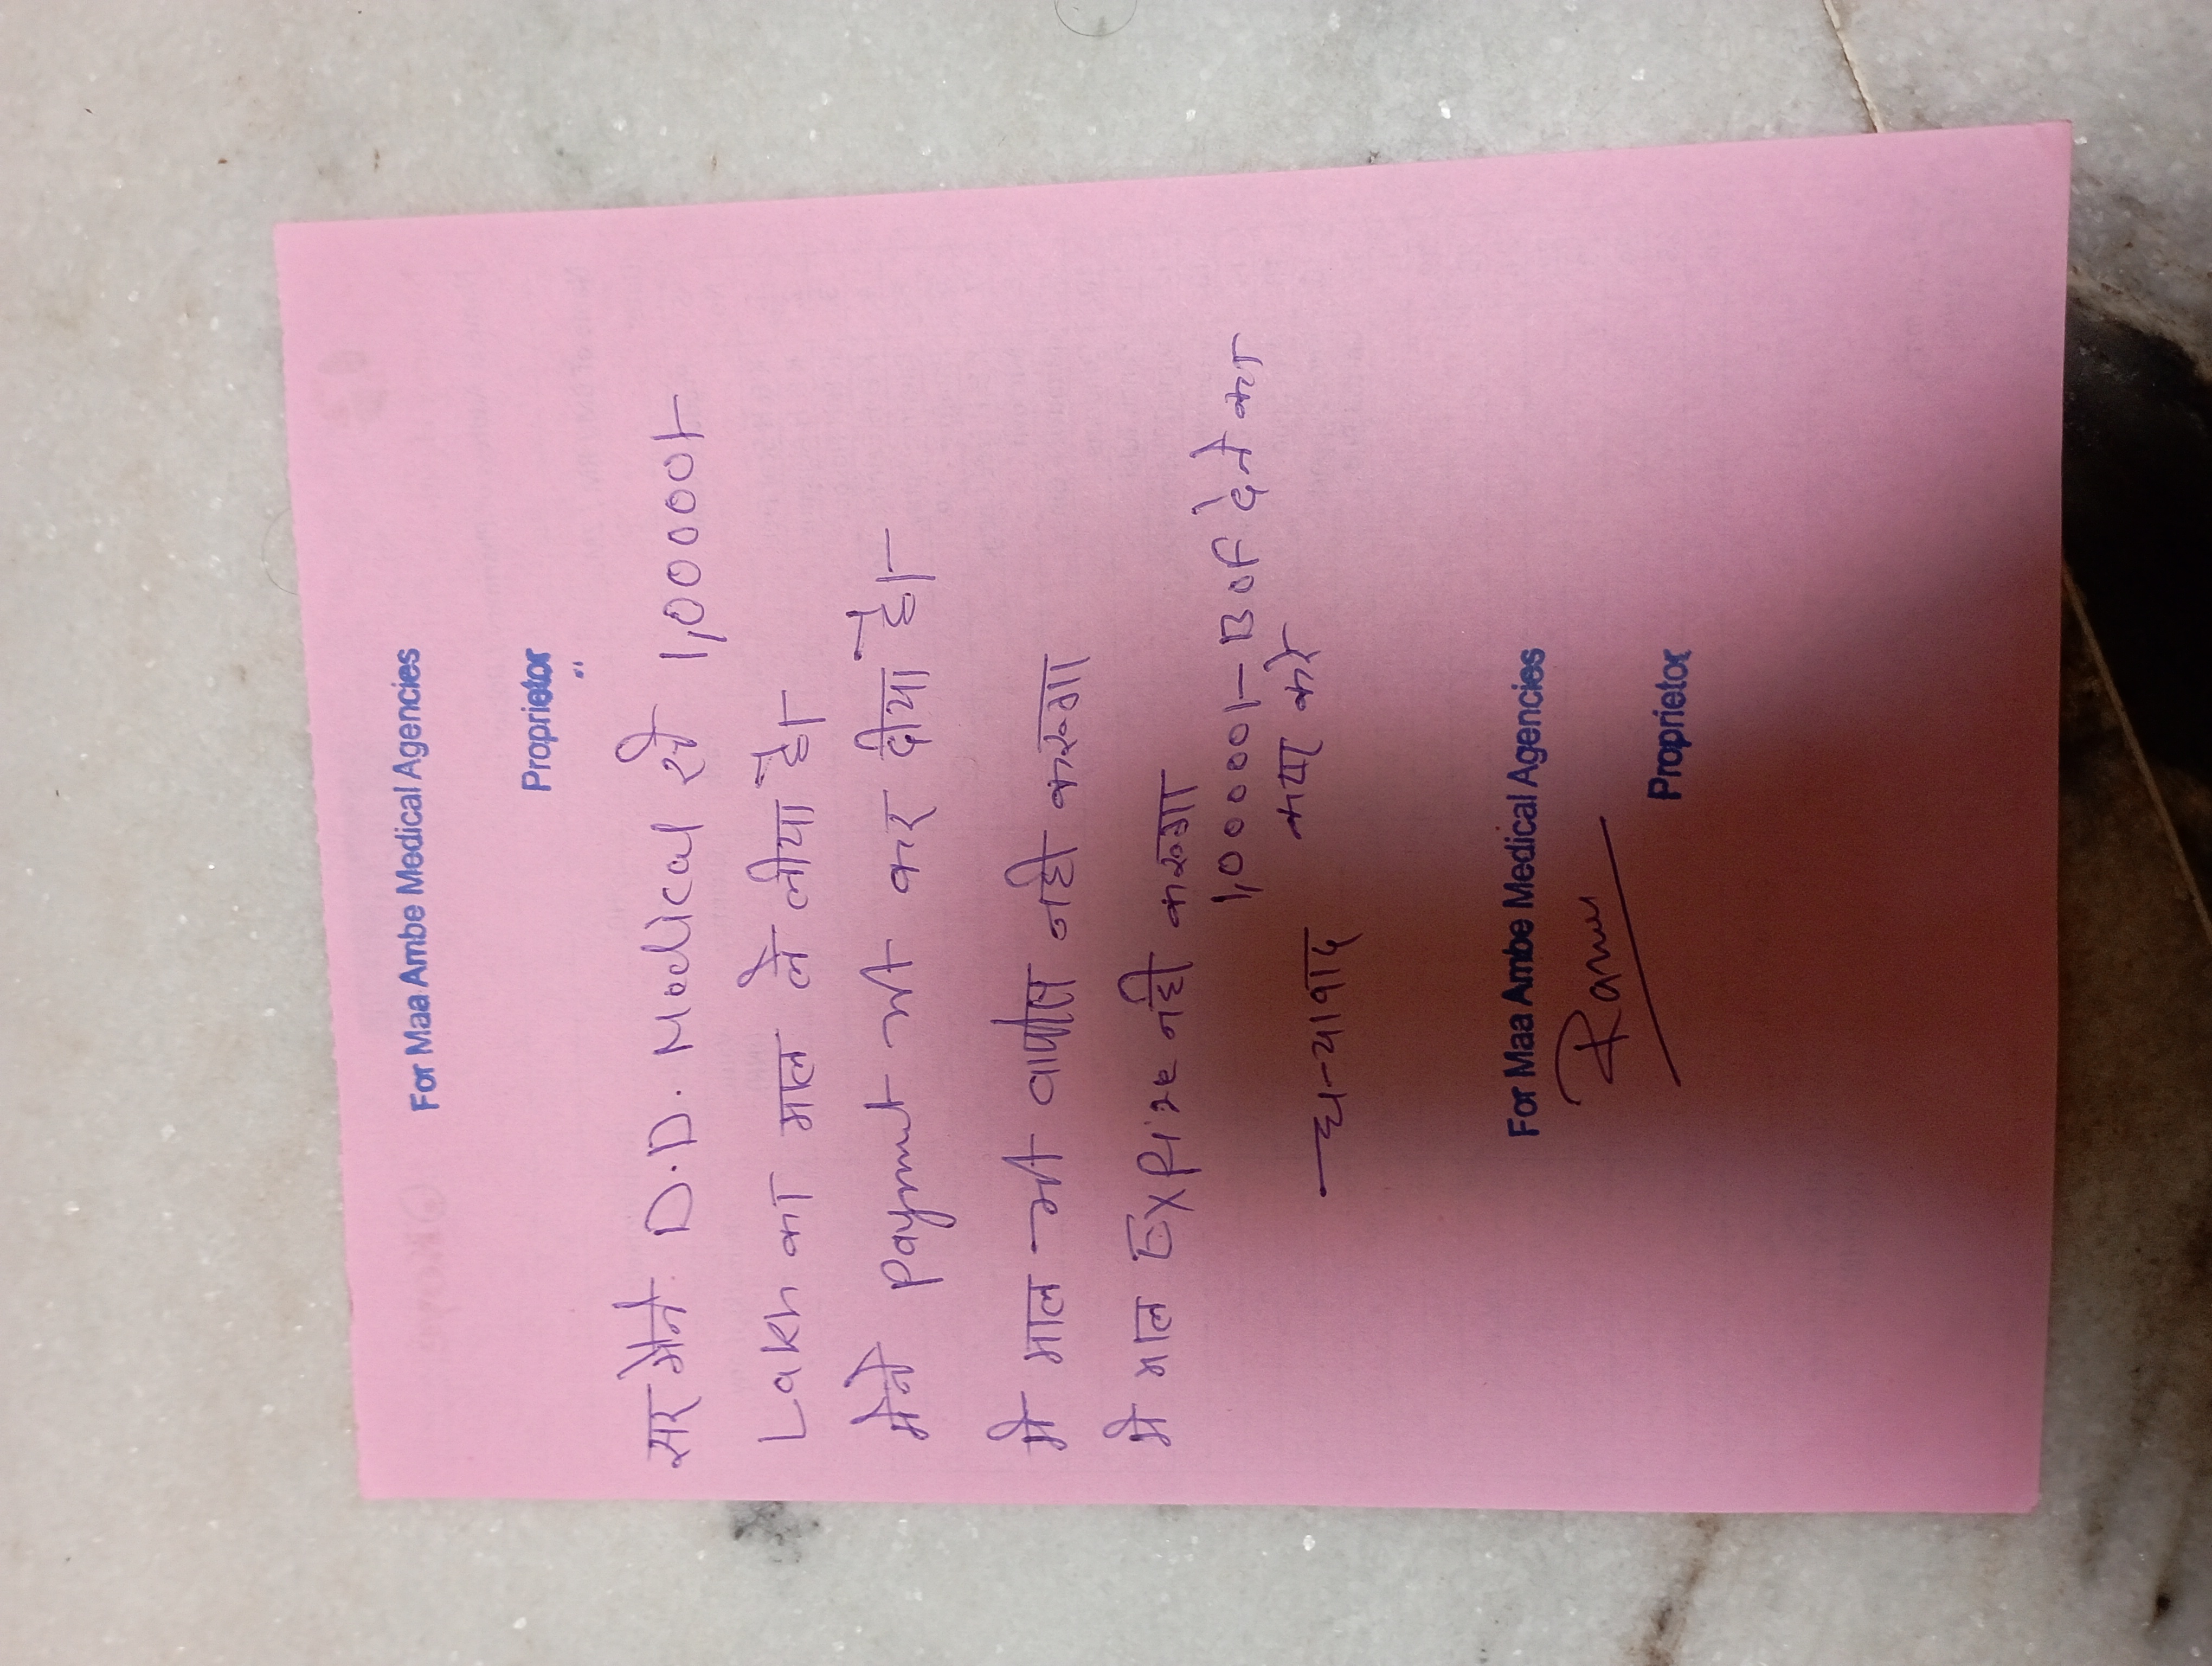 For Maa Ambe Medical Agencies
Proprietor
सर मैने D.D. Medical से 1,00000/-
Lakh का माल ले लीया है।-
मैने Payment भी कर दीया है।-
मै माल भी वापीस नही करूगा
मै माल Expire नही करूगा
1,00000/- BOF देने का
कर
धन्यावाद
For Maa Ambe Medical Agencies
Proprietor